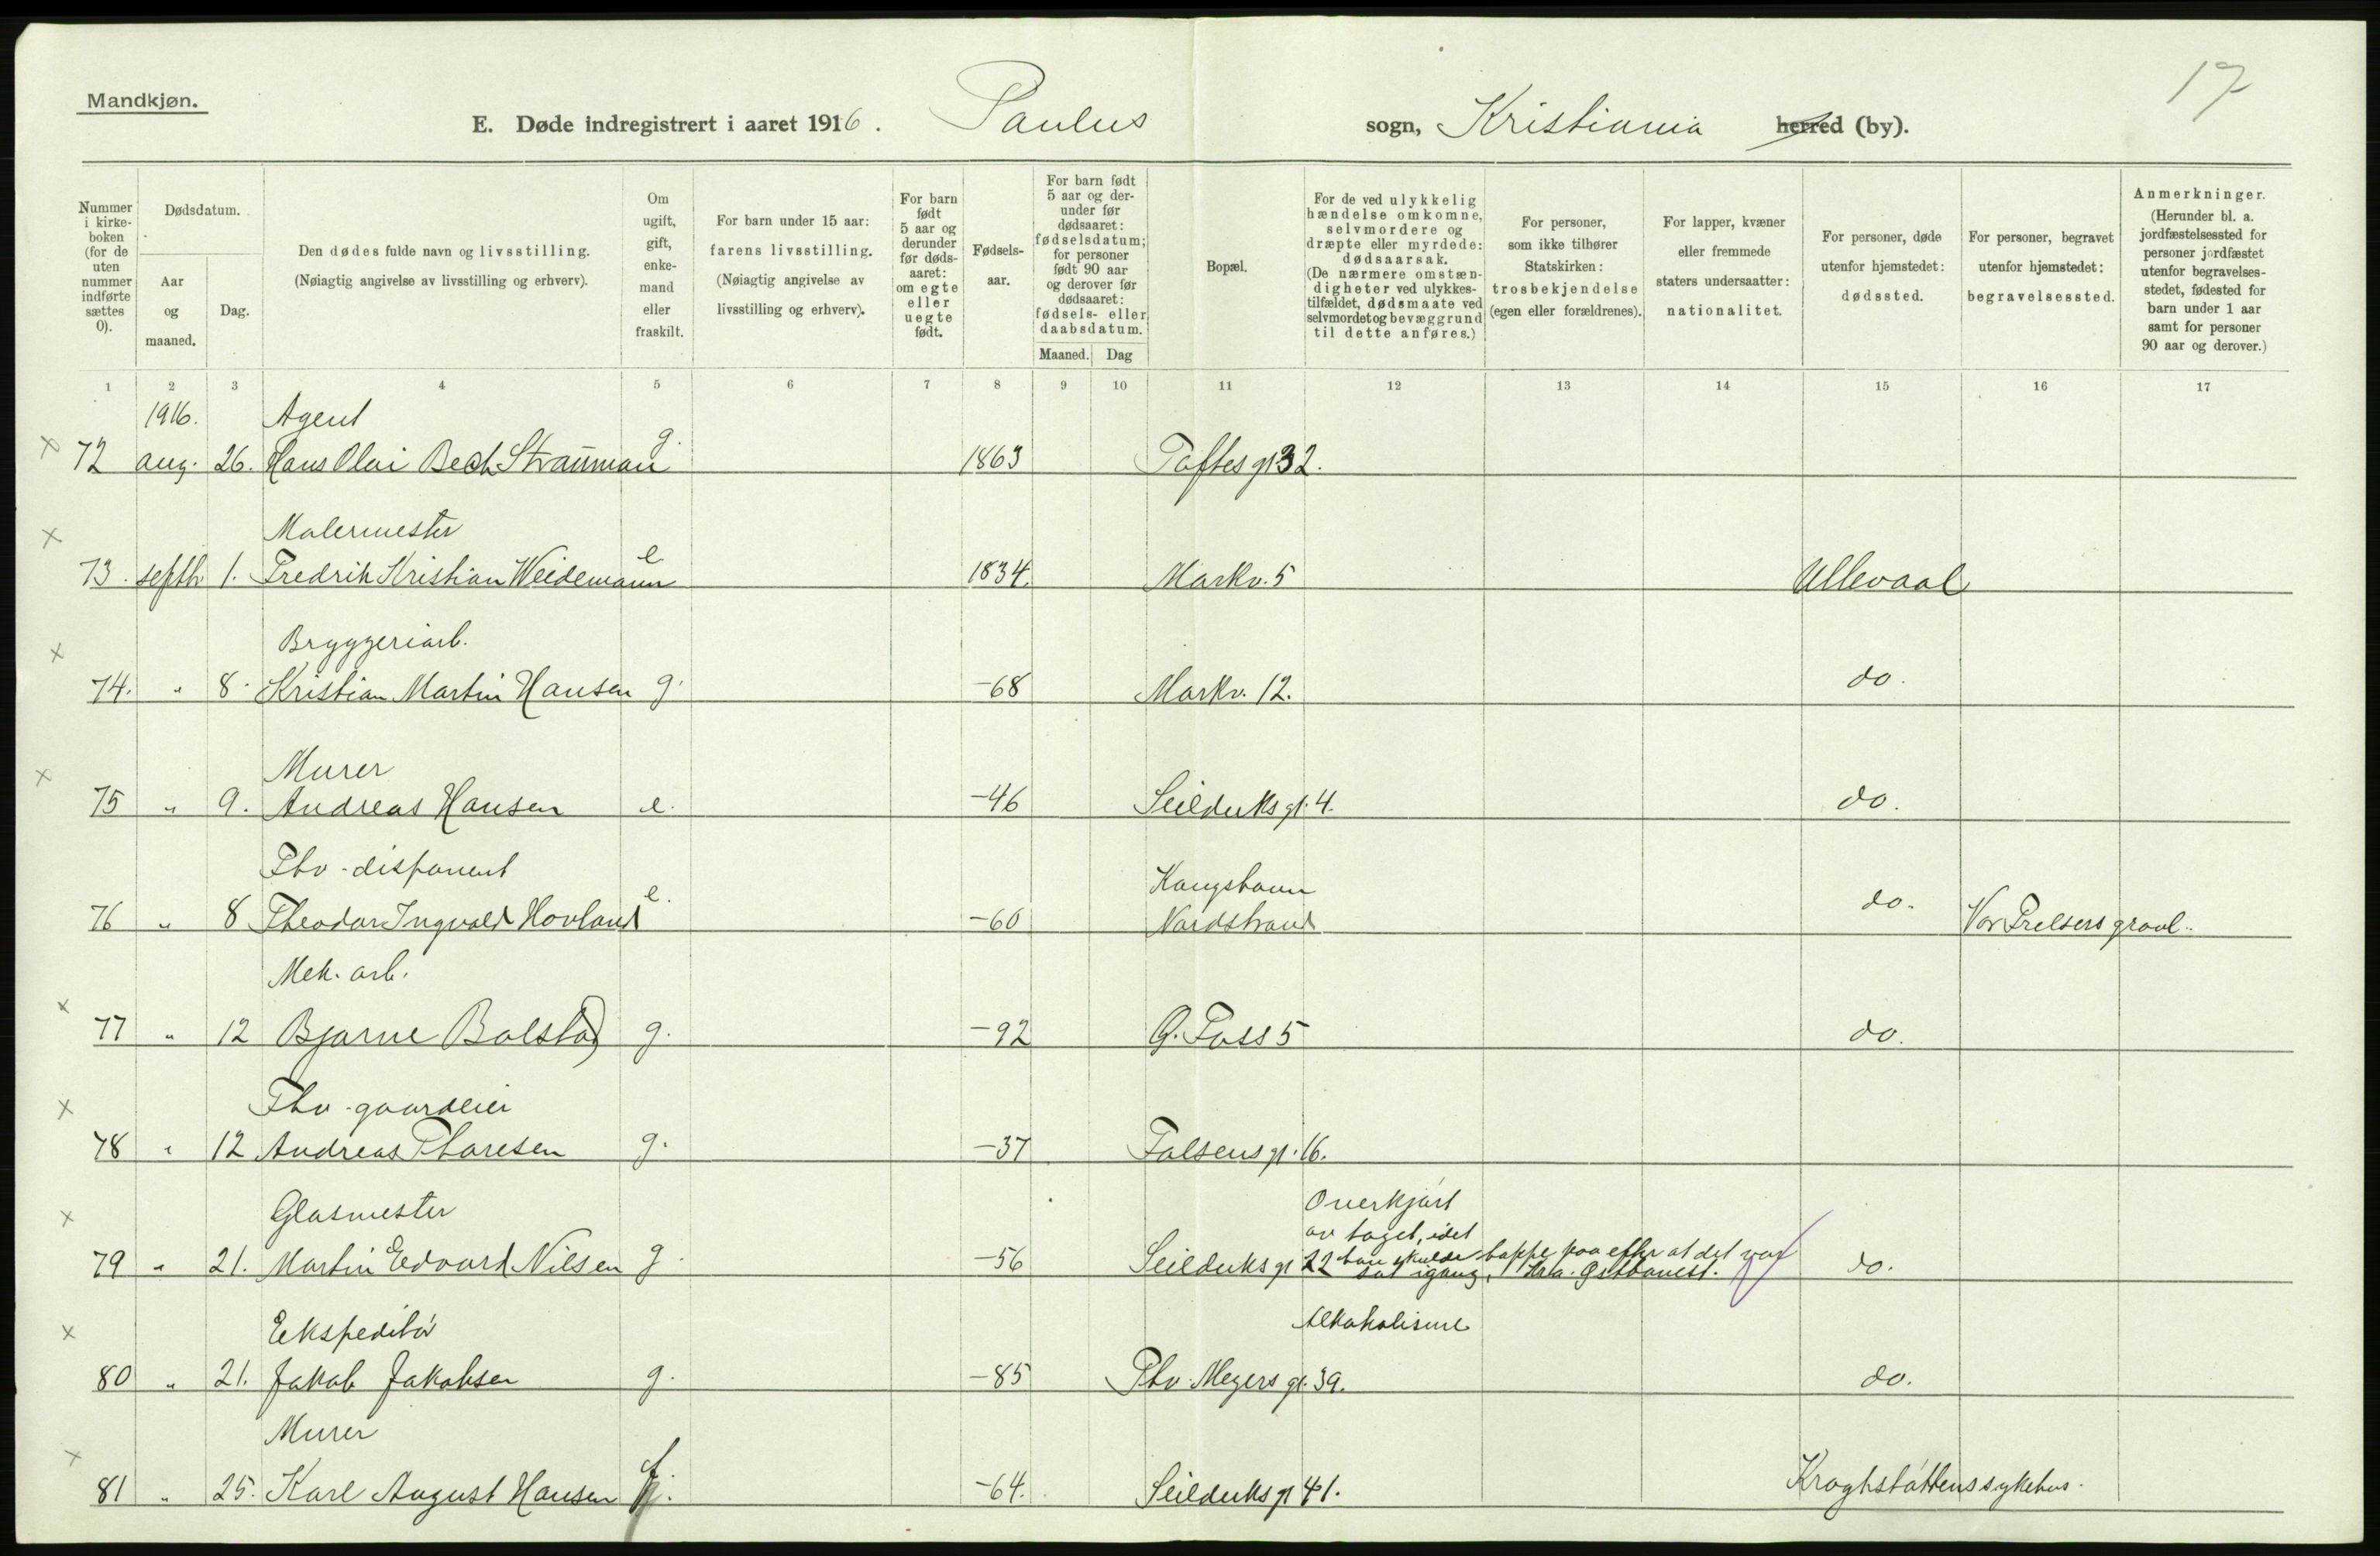 Mandkjøn.
17
E. Døde indregistrert i aaret 1916. Paulus sogn, Kristiania herred (by).
Nummer i kirke-boken (for de uten nummer indførte sættes 0).
Dødsdatum.
Aar og maaned.
Dag.
Den dødes fulde navn og livsstilling.
(Nøiagtig angivelse av livsstilling og erhverv).
Om ugift, gift, enke-mand eller fraskilt.
For barn under 15 aar: farens livsstilling.
(Nøiagtig angivelse av livsstilling og erhverv).
For barn født 5 aar og derunder før døds-aaret: om egte eller uegte født.
Fødsels-aar.
For barn født 5 aar og der-under før dødsaaret: fødselsdatum; for personer født 90 aar og derover før dødsaaret: fødsels- eller daabsdatum.
Maaned. Dag
Bopæl.
For de ved ulykkelig hændelse omkomne, selvmordere og dræpte eller myrdede: dødsaarsak.
(De nærmere omstæn-digheter ved ulykkes-tilfældet, dødsmaate ved selvmordet og bevæggrund til dette anføres.)
For personer, som ikke tilhører Statskirken: trosbekjendelse (egen eller forældrenes).
For lapper, kvæner eller fremmede staters undersaatter: nationalitet.
For personer, døde utenfor hjemstedet: dødssted.
For personer, begravet utenfor hjemstedet: begravelsessted.
Anmerkninger.
(Herunder bl. a. jordfæstelsessted for personer jordfæstet utenfor begravelses-stedet, fødested for barn under 1 aar samt for personer 90 aar og derover.)
1 2 3 4 5 6 7 8 9 10 11 12 13 14 15 16 17
1916. Agent
72 aug. 26. Hans Olai Bech Strauman g. 1863 Toftes gt 32.
Malermester
73. septbr 1. Fredrik Kristian Weidemann e 1834. Markv. 5 Ullevaal
Bryggeriarb.
74. " 8. Kristian Martin Hansen g. -68 Markv. 12. do.
Murer
75 " 9. Andreas Hansen e. -46 Seilduks gt. 4. do.
Fhv - disponent
76 " 8 Theodor Ingvald Hovland e. -60 Kongshavn Nordstrand do. Vor Frelsers gravl.
Mek. arb.
77 " 12 Bjarne Bolstad g. -92 G. Foss 5 do.
Fhv - gaardeier
78 " 12 Andreas Thoresen g. -37 Falsens gt. 16.
Glasmester
79 " 21. Martin Edvard Nilsen g -56 Seilduks gt 22 Overkjørt av toget, idet han skulde hoppe paa efter at det var sat igang, Kra. Østbanest. do.
Ekspeditør
80 " 21. Jakob Jakobsen g. -85 Thv. Meyers gt. 39. Alkoholisme do.
Murer
81 " 25. Karl August Hansen f. -64. Seilduks gt 41. Kroghstøttens sykehus.